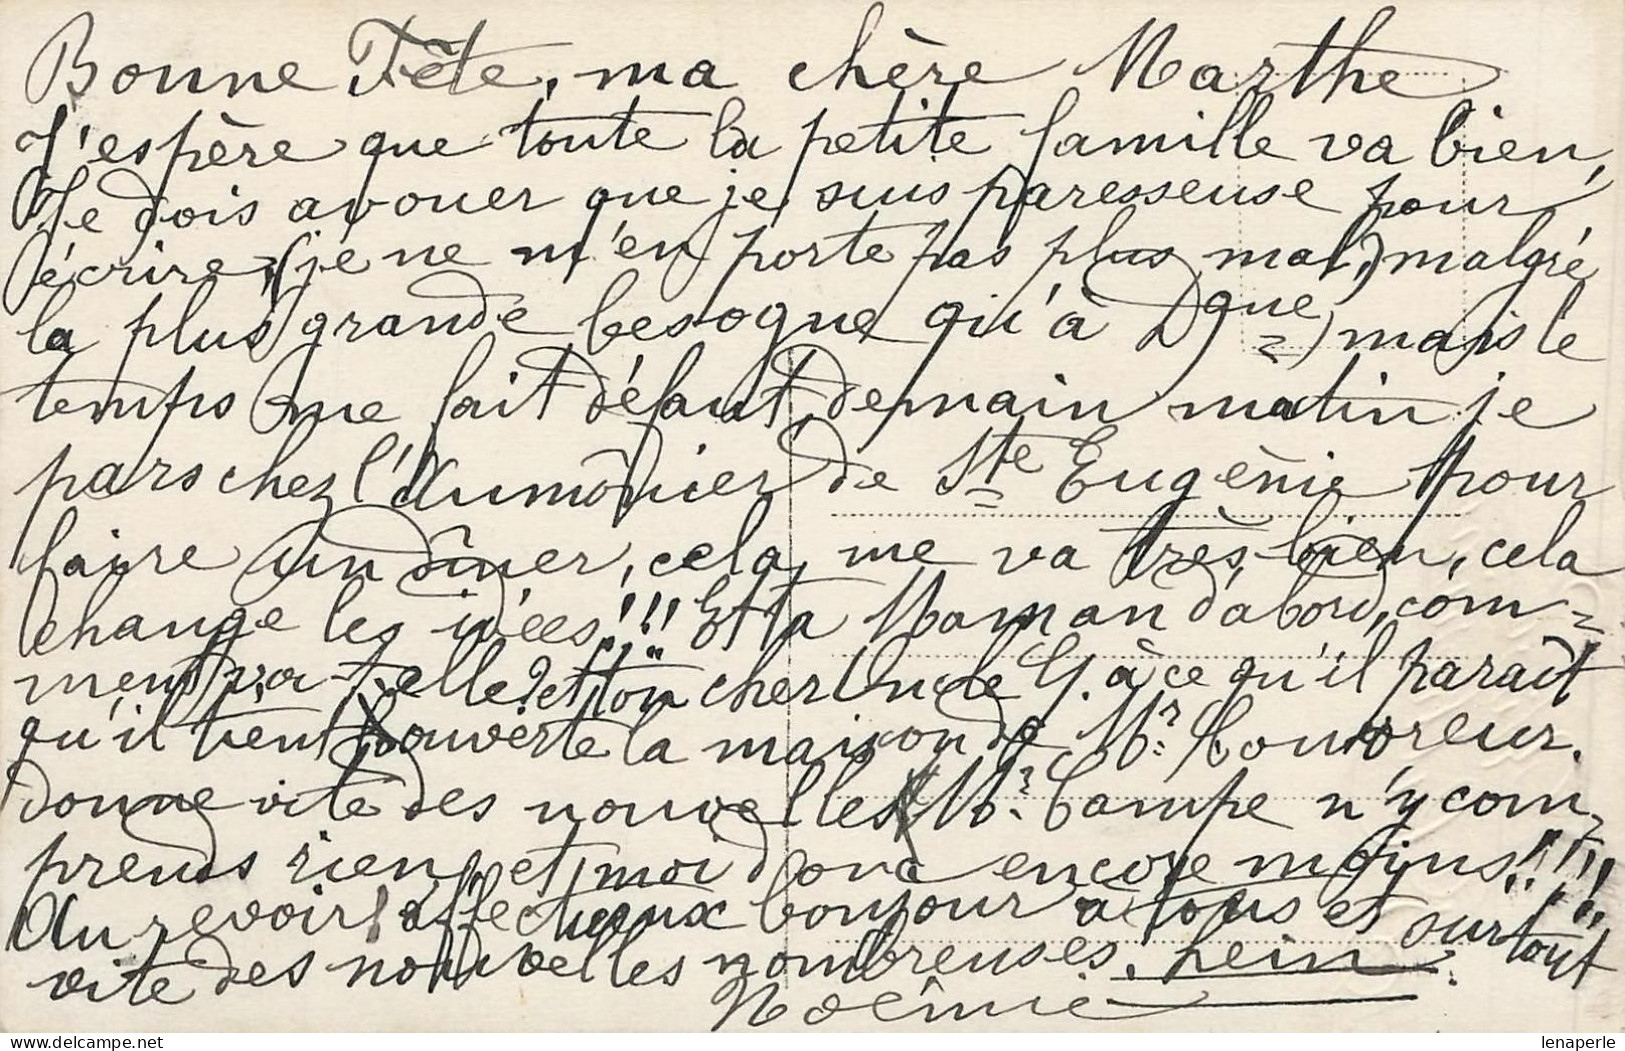 Bonne Fête, ma chère Marthe
J'espère que toute la petite famille va bien,
Je dois avouer que je suis paresseuse pour
écrire, (je ne m'en porte pas plus mal,) malgré
la plus grande besogne qu'à Dque) mais le
temps me fait défaut, demain matin je
pars chez l'Aumônier de Ste Eugénie pour
faire un dîner, cela me va très bien, cela
change les idées!!! Et ta Maman d'abord, com-
ment va-t-elle? et ton cher Oncle G. à ce qu'il paraît
qu'il tient ouverte la maison de Mr. Couvreur.
donne vite des nouvelles Mr. Campe n'y com-
prends rien, et moi donc encore moins!!!!!
Au revoir! affectueux bonjour à tous et surtout
vite des nouvelles nombreuses, hein.
Noëmie
delcampe.net
lenaperle